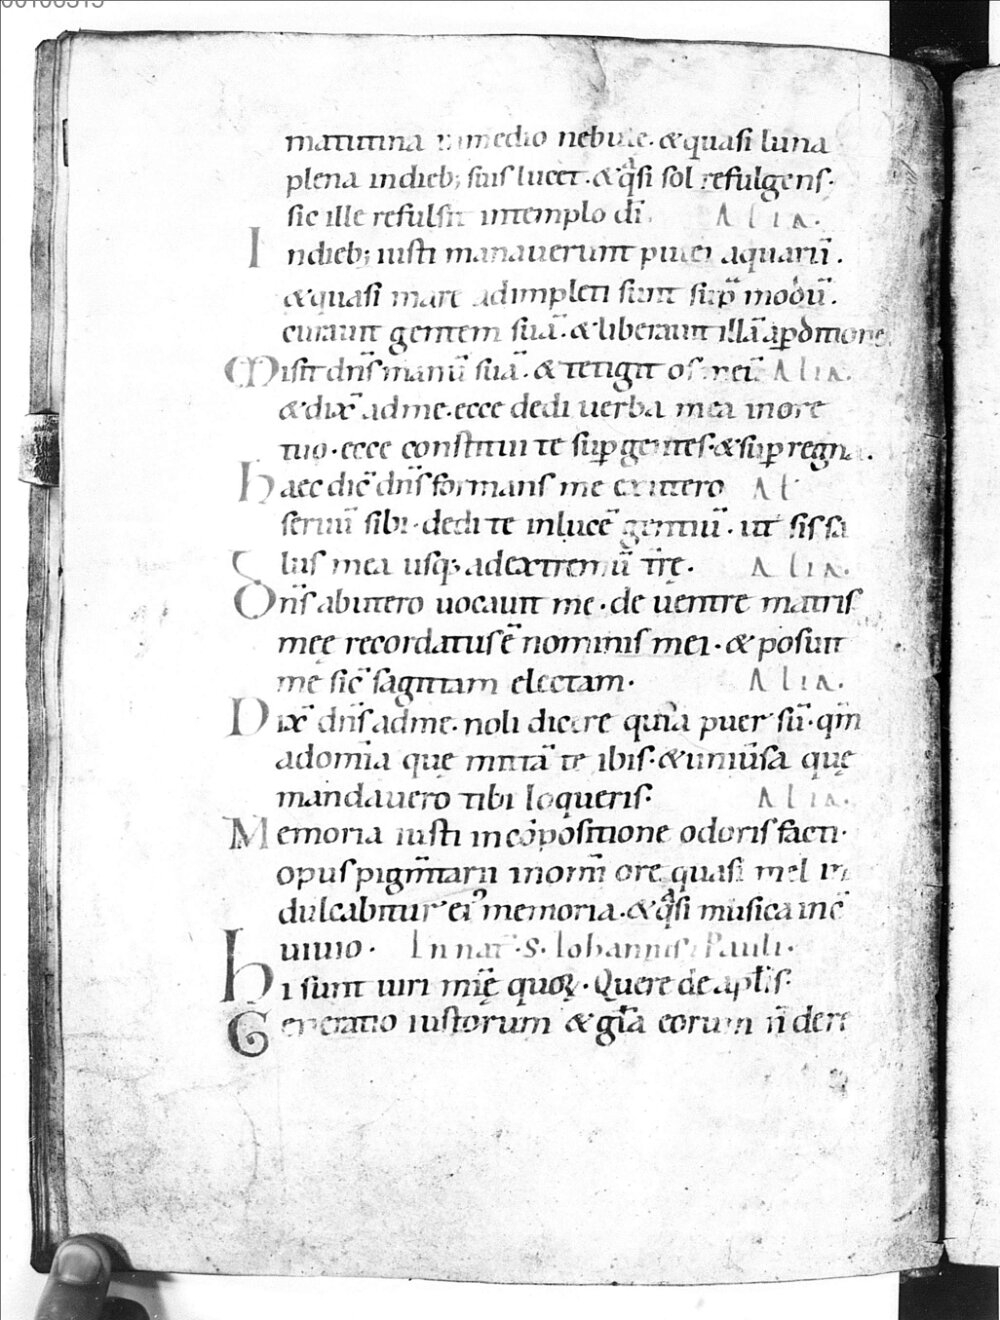 matutina in medio nebulę. & quasi luna
plena indieb; suis lucet. & q̊si sol refulgens.
sic ille refulsit intemplo dī. Alia.
Indieb; iusti manauerunt putei aquarū.
& quasi mare adimpleti sunt sup̄ modū.
curauit gentem suā. & liberauit illā a pditione
Misit dn̄s manū suā. & tetigit os meū. Alia.
& dix̄ adme. ecce dedi uerba mea inore
tuo. ecce constitui te sup gentes. & sup regna.
Haec dic̄ dn̄s formans me exutero Al
seruū sibi. dedi te inlucē gentiū. ut sis sa
lus mea usq; adextremū trę. Alia.
Dn̄s abutero uocauit me. de uentre matris
meę recordatus ē nominis mei. & posuit
me sic̄ sagittam electam. Alia.
Dix̄ dn̄s adme. noli dicere quia puer sū. qm̄
adomīa quę mittā te ibis. & uniūsa quę
mandauero tibi loqueris. Alia.
Memoria iusti incōpositione odoris facti.
opus pigm̄tarii inom̄i ore quasi mel in
dulcabitur ei' memoria. & q̊si musica inc̄
uiuio. In nat. S. Iohannis & Pauli.
Hi sunt uiri mīę quoꝝ. Quere de apl̄is.
Generatio iustorum & gl̄a eorum n̄ dere